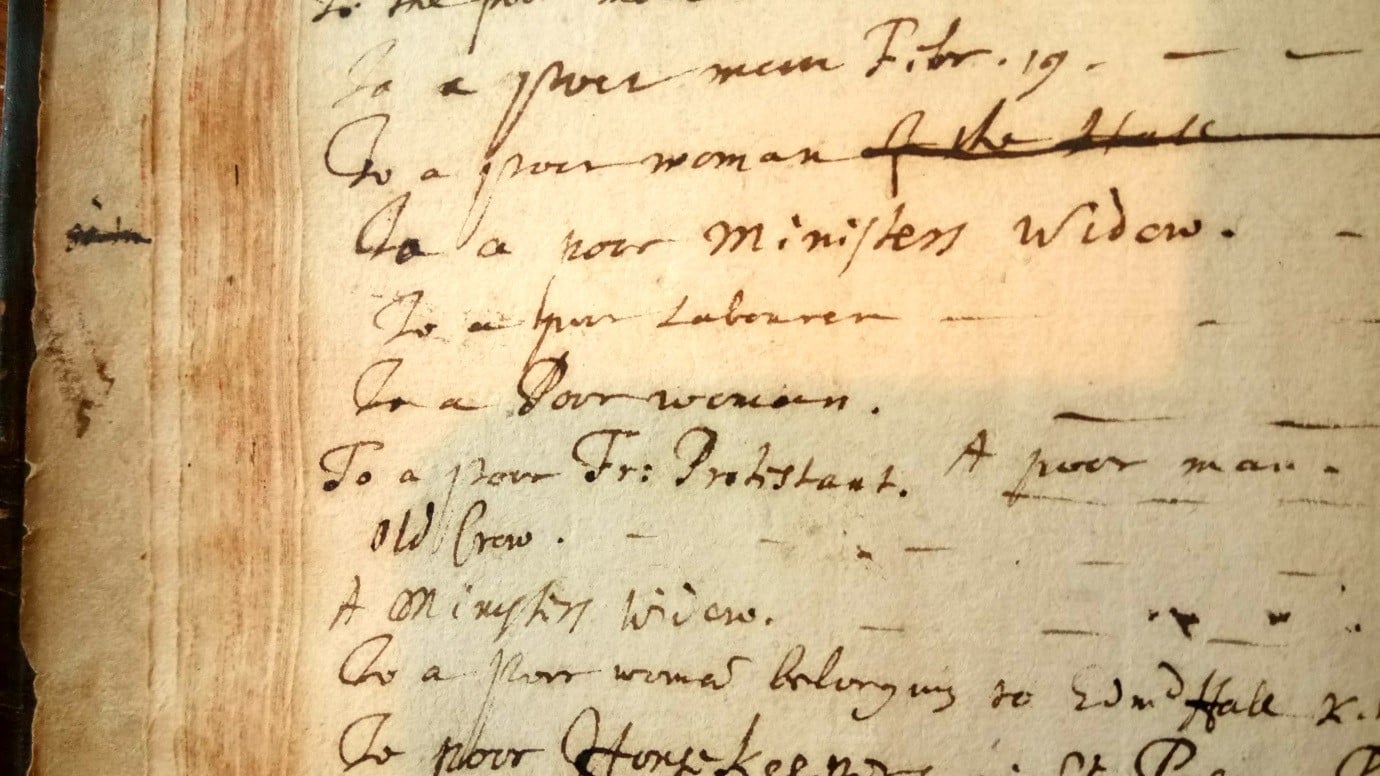 To the poor
To a poor man Febr. 19.
To a poor woman of the Hall
To a poor Ministers Widow.
To a poor Labourer
To a Poor woman.
To a poor Fr: Protestant. A poor man
Old Crow.
A Ministers Widow.
To a poor womā belonging to Edmd Hall
To poor